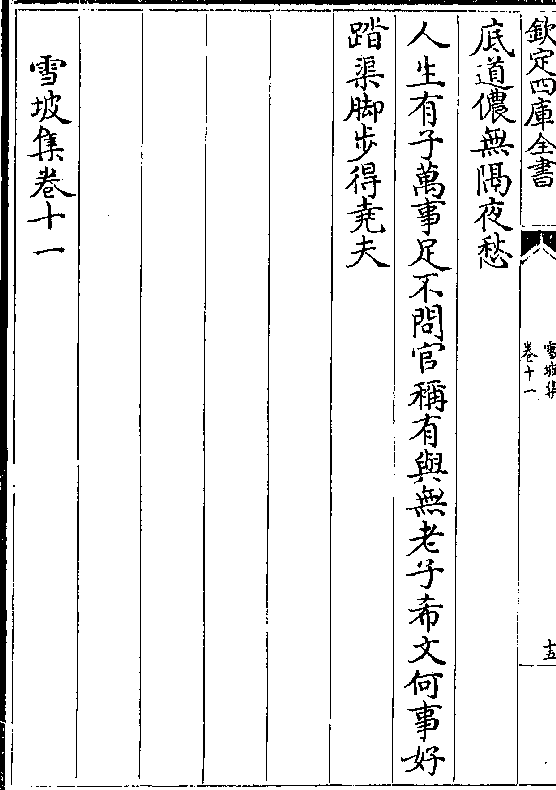 欽定四庫全書
雪坡集
卷十一
十五
底道儂無隔夜愁
人生有子萬事足不問官稱有與無老子希文何事好
踏渠脚步得堯夫
雪坡集卷十一